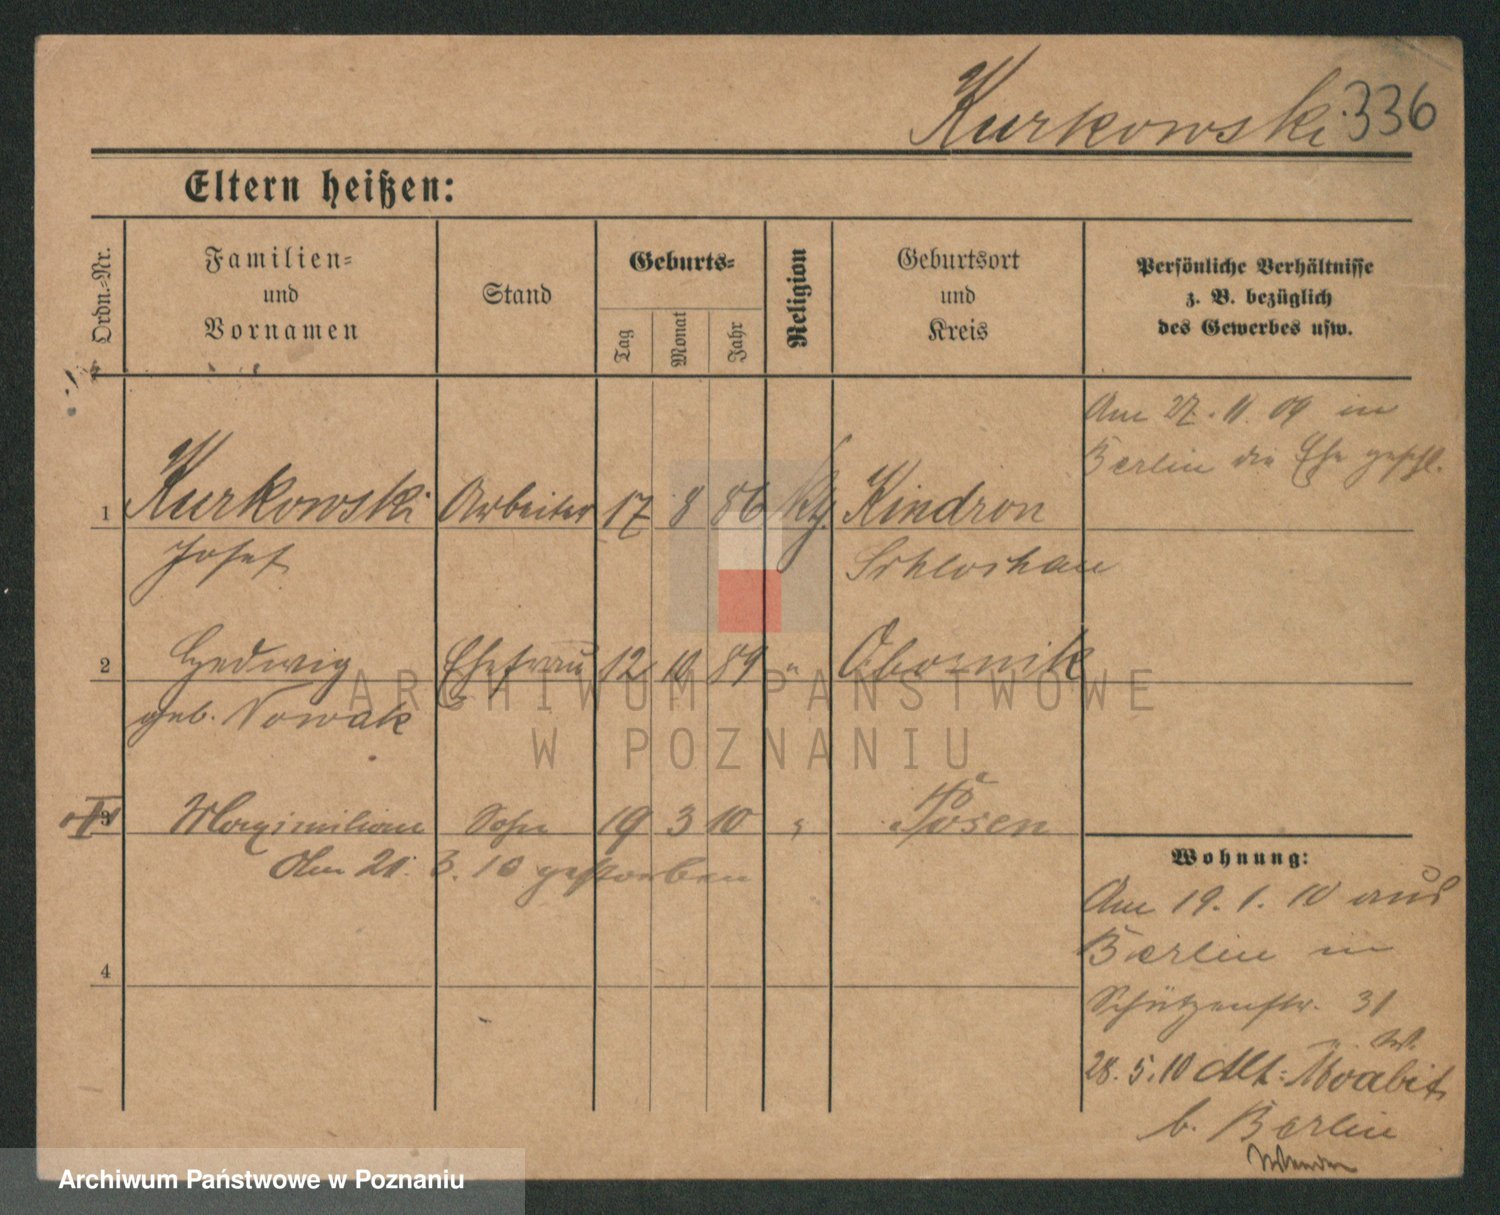 Kurkowski 336
Eltern heißen:
Ordn.-Nr.
Familien-
und
Vornamen
Stand
Geburts-
Tag
Monat
Jahr
Religion
Geburtsort
und
Kreis
Persönliche Verhältnisse
z. B. bezüglich
des Gewerbes usw.
Am 27.11.09 in
Berlin die Ehe geschl.
1 Kurkowski Arbeiter 17 8 86 Kindron
Josef Schlochau
2 Hedwig Ehefrau 12 10 89 " Obornik
geb. Nowak
ARCHIWUM PAŃSTWOWE
W POZNANIU
3 Maximilian Sohn 19 3 10 " Posen
Am 21. 3. 10 gestorben
Wohnung:
Am 19. 1. 10 aus
Berlin in
Schützenstr. 31
4
28. 5. 10 Alt-Moabit
b. Berlin
Archiwum Państwowe w Poznaniu